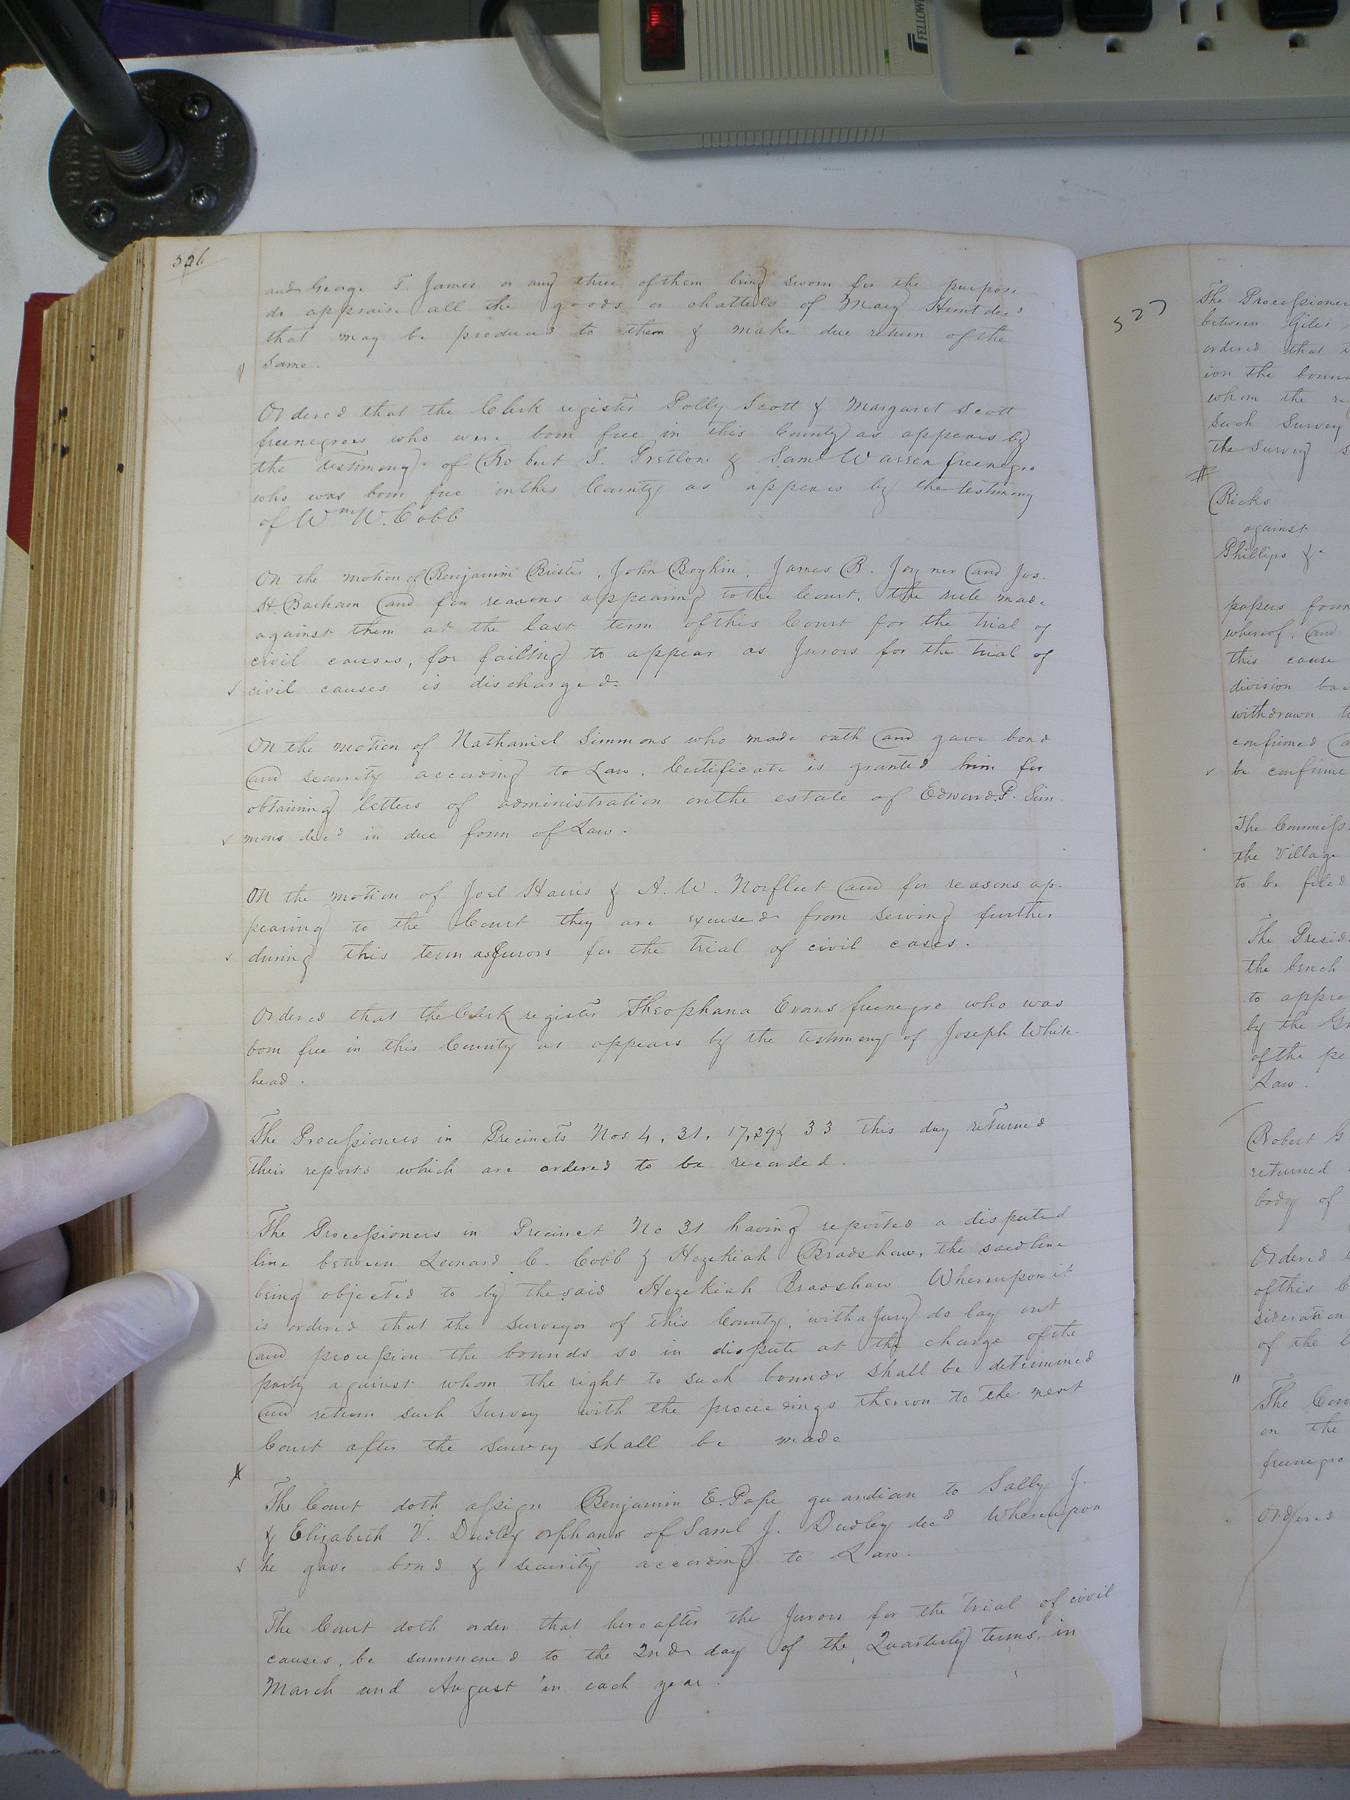 526
and George T. James or any three of them being sworn for the purpose
do appraise all the goods or chattels of Mary decd
that may be produced to them & make due return of the
same.
Ordered that the Clerk register Polly Scott & Margaret Scott
freenegroes who were born free in this County as appears by
the testimony of Robert S. & Saml Warren freenegro
who was born free in this County as appears by the testimony
of Wm W. Cobb
On the motion of Benjamin Brister, John Boykin, James R. Joyner and Jos.
H Barham and for reasons appearing to the Court, the rule made
against them at the last term of this Court for the trial of
civil causes, for failing to appear as Jurors for the trial of
civil causes is discharged.
On the motion of Nathaniel Simmons who made oath and gave bond
and security according to Law, Certificate is granted him for
obtaining letters of administration on the estate of Edward P. Sim
mons decd in due form of Law.
On the motion of Joel Harris & A. W. Norfleet and for reasons ap-
pearing to the Court they are excused from serving further
during this term as Jurors for the trial of civil cases.
Ordered that the Clerk register Theophana Evans freenegro who was
born free in this County as appears by the testimony of Joseph White-
head.
The Processioners in Precincts Nos 4, 31, 17, 29 & 33 this day returned
their reports which are ordered to be recorded.
The Processioners in Precinct No 31 having reported a disputed
line between Leonard C. Cobb & Hezekiah Bradshaw, the said line
being objected to by the said Hezekiah Bradshaw Whereupon it
is ordered that the surveyor of this County, with a Jury do lay out
and procession the bounds so in dispute at the charge of the
party against whom the right to such bounds shall be determined
and return such Survey with the proceedings thereon to the next
Court after the survey shall be made
The Court doth assign Benjamin E. Pope guardian to Sally J.
& Elizabeth V. Dudley orphans of Saml J. Dudley decd Whereupon
he gave bond & security according to Law.
The Court doth order that hereafter the Jurors for the trial of civil
causes, be summoned to the 2nd day of the Quarterly terms, in
March and August in each year.
527
The Processioner
between Giles
ordered that i
ion the boun
whom the r
such Survey
the Survey s
Ricks
against
Phillips &
papers foun
whereof, and
this cause
division ba
withdrawn t
confirmed a
be confirme
The Commiss
the Village
to be filed
The Presid
the bench
to appre
by the Gr
of the pe
Law.
Robert G
returned
body of
Ordered
of this C
sideration
of the C
The Cou
on the
freenegro
Ordered
FELLOWE